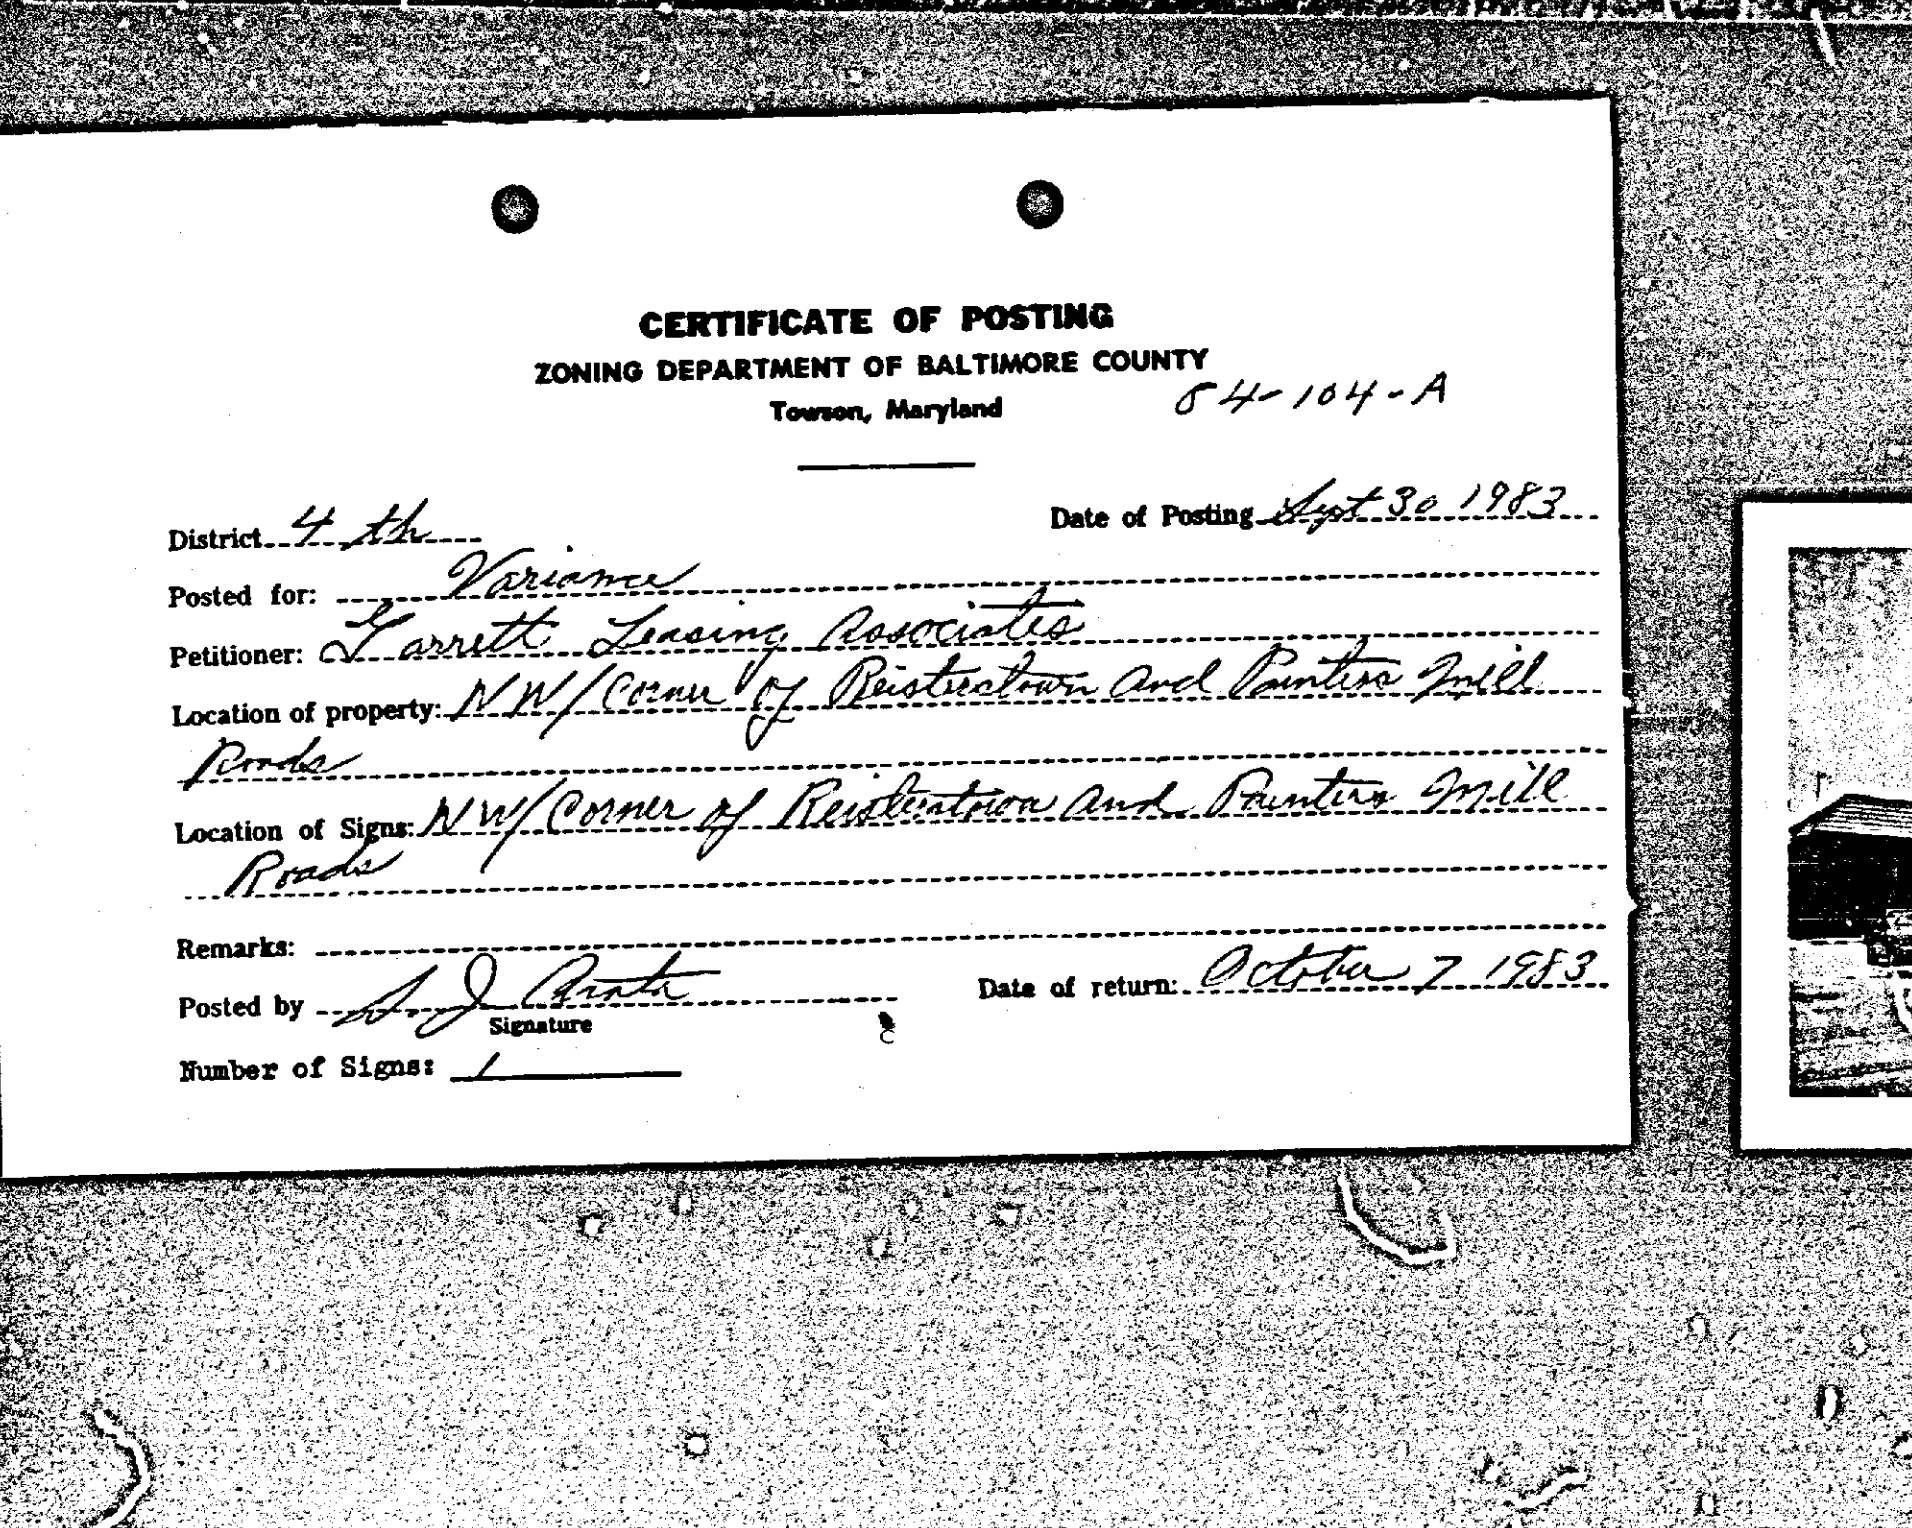 CERTIFICATE OF POSTING
ZONING DEPARTMENT OF BALTIMORE COUNTY
Towson, Maryland
84-104-A
District 4th Date of Posting Sept 30 1983
Posted for: Variance
Petitioner: Garrett Leasing Associates
Location of property: NW/Corner of Reisterstown and Painters Mill
Roads
Location of Signs: NW/Corner of Reisterstown and Painters Mill
Roads
Remarks:
Posted by S. J. Arata Date of return: October 7 1983
Signature
Number of Signs: 1